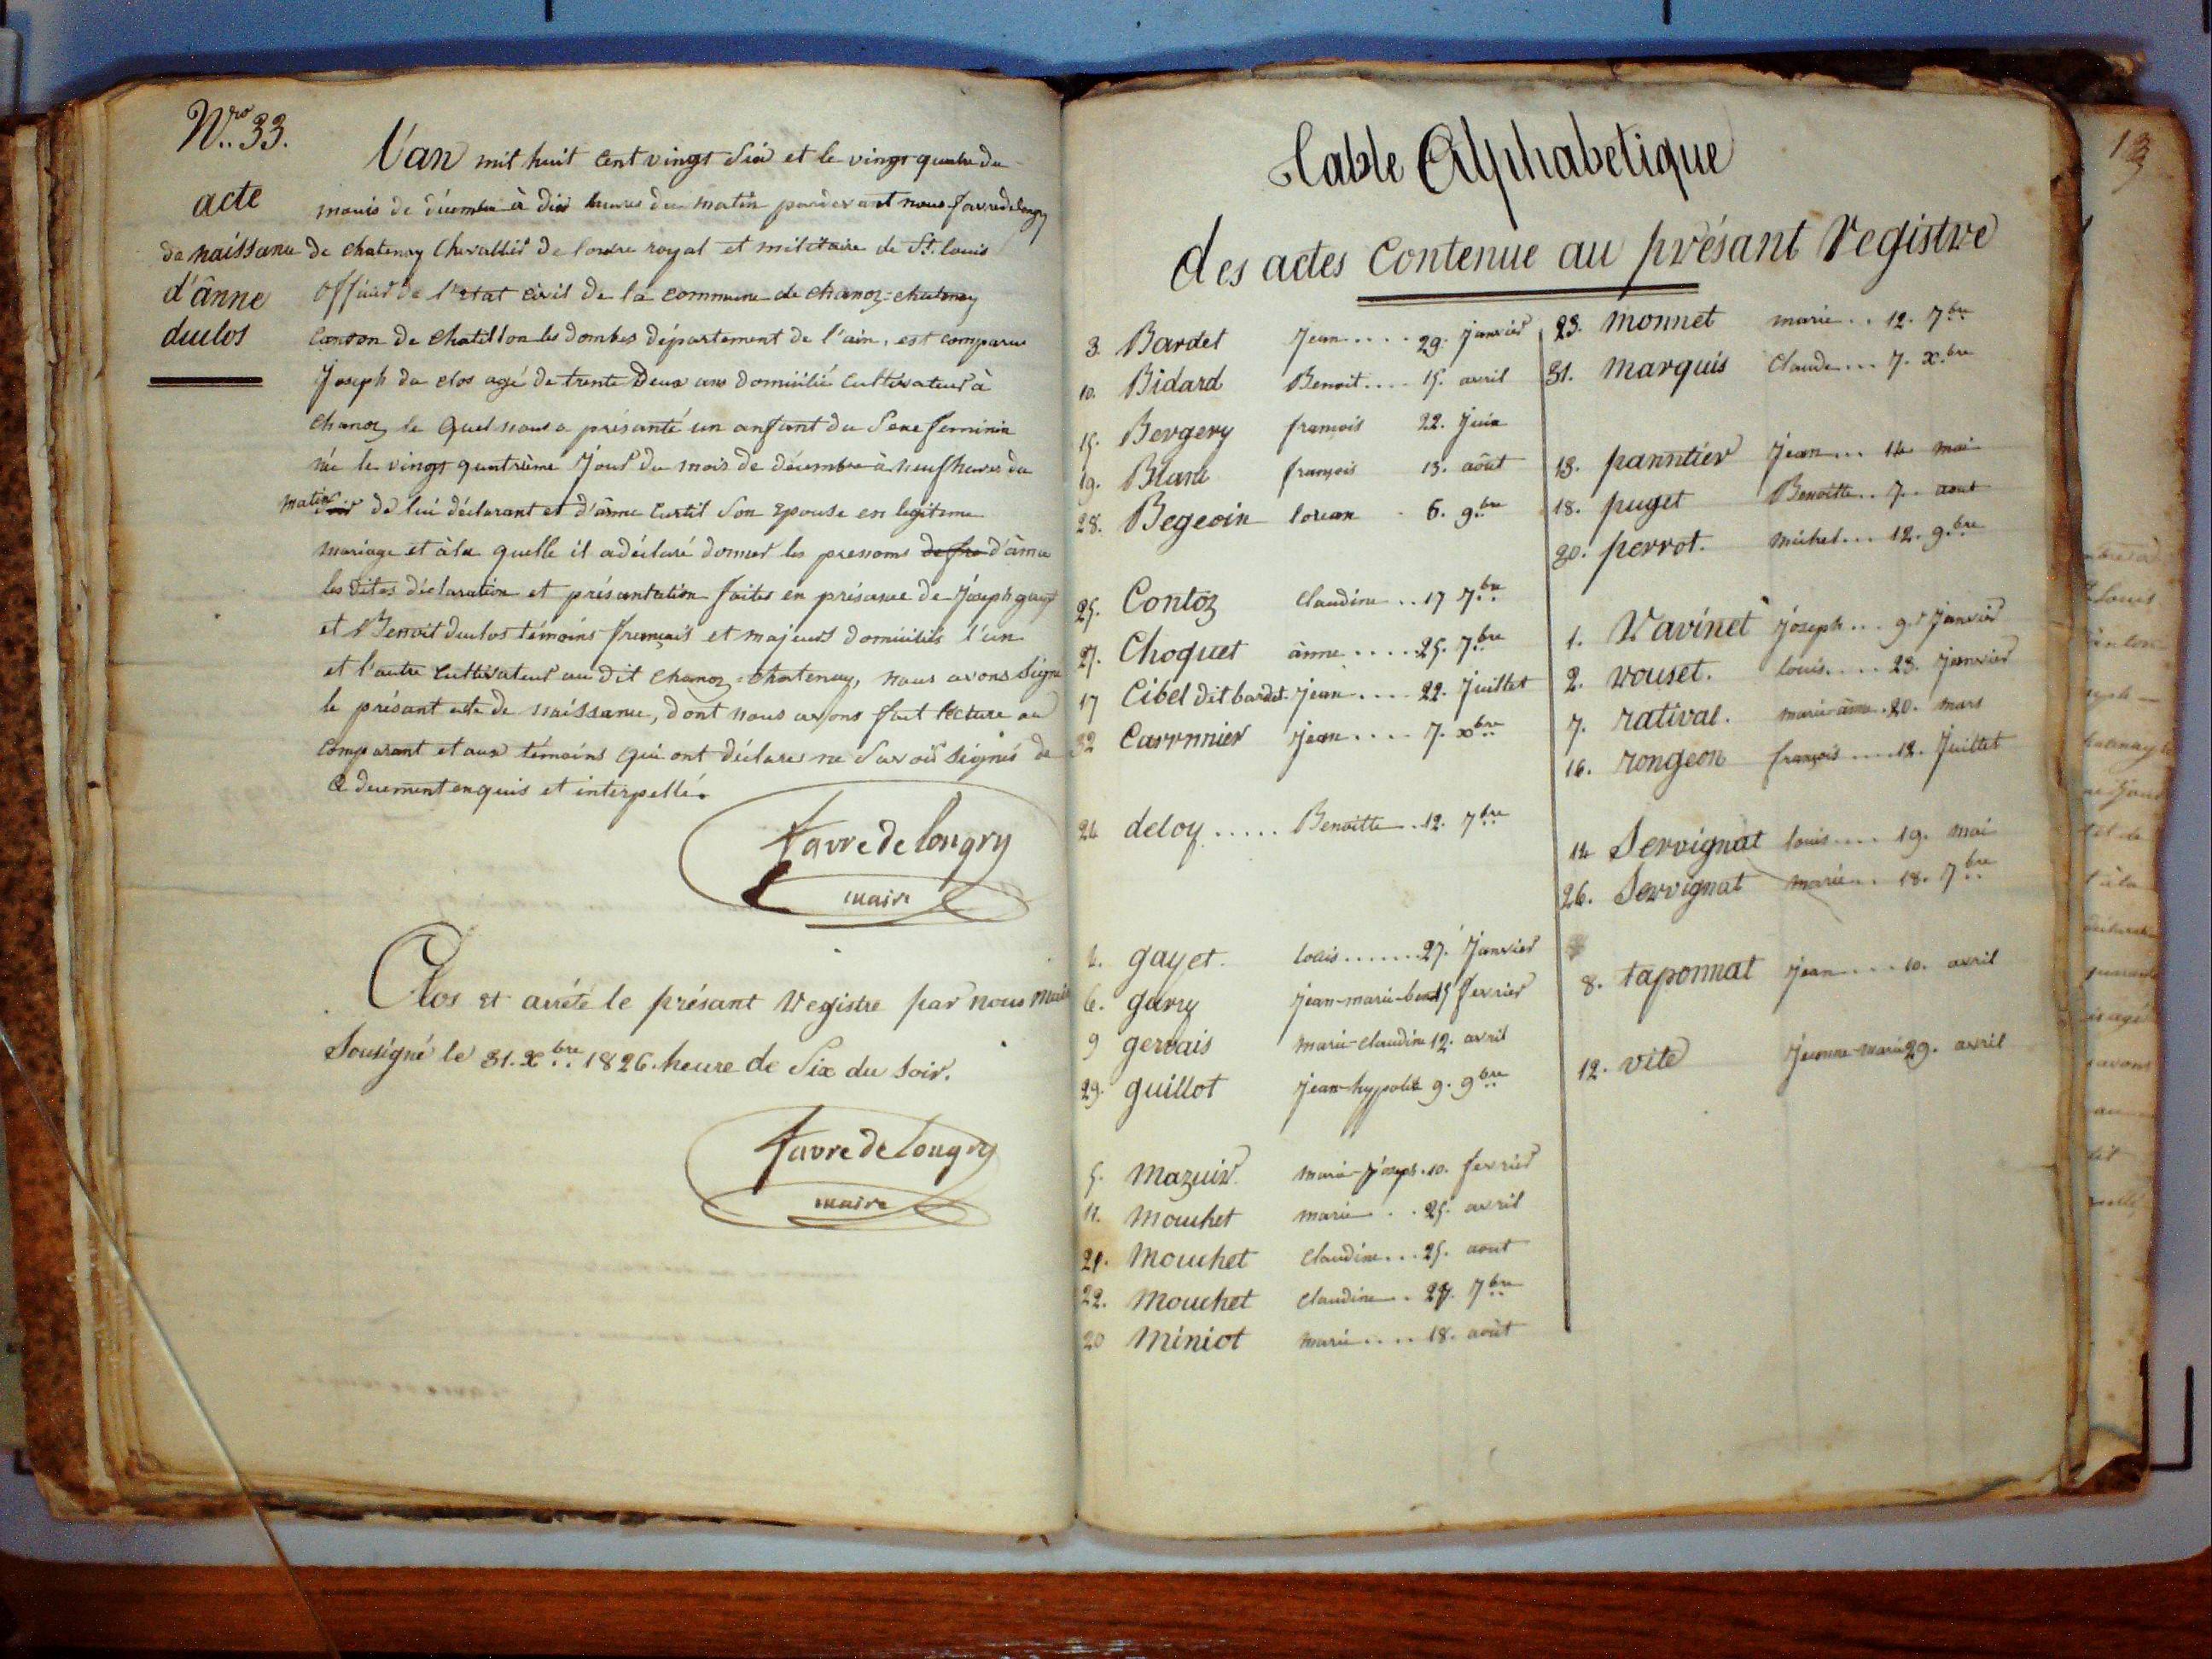 Nro.. 33.
acte
de naissance
d'ânne
duclos
L'an mil huit cent vingt Six et le vingt quatre du
mouis de décembre à dix heures du matin pardevant nous favre de longry
de chatenay Chevallier de l'ordre royal et militaire de St. Louis
Officier de l'état civil de la commune de chanoz-chatenay
Canton de Chatillon les dombes département de l'ain, est comparus
Joseph du clos agé de trente Deux ans domicilié Cultivateur à
chanoz le quel nous a présanté un anfant du Sexe feminin
née le vingt quatrième Jour du mois de décembre à neuf heures du
matin soir de lui déclarant et d'ânne Curtil Son Epouse en legitime
mariage et à la quelle il a déclaré donner les prenoms de fra d'ânne
les dites déclaration et présantation faites en présance de Joseph
et Benoit duclos témoins français et majeurs domiciliés l'un
et l'autre Cultivateur au dit Chanoz-Chatenay, nous avons Signé
le présant acte de naissance, dont nous avons fait lecture au
comparant et aux témoins qui ont déclaré ne Savoir Signés de
Ce duement enquis et interpellé.
favre de longry
maire
Clos et arrété le présant Registre par nous maire
Sousigné le 31. xbre.. 1826. heure de Six du Soir.
favre de longry
maire
Table Alphabetique
des actes Contenue au présant Registre
3. Bardet Jean.... 29. Janvier
10. Bidard Benoit.... 15. avril
15. Bergery francois 22. Juin
19. Blanc françois 13. août
28. Begeoin 6. 9bre
25. Contoz Claudine.. 17 7bre
27. Choquet ânne.....25. 7bre
17 Cibel dit bardet Jean.... 22. Juillet
32 Caronnier Jean.... 7. xbre
24 deloy..... Benoitte..12. 7bre
4. gayet. louis.......27. Janvier
6. gary Jean-marie-benoit 15 fevrier
9 gervais marie-claudine 12. avril
29. guillot Jean-hypolite 9. 9bre
5. Mazuir marie-Joseph.10. fevrier
11. Mouchet marie... 25. avril
21. Mouchet Claudine...25. aout
22. Mouchet Claudine.. 27. 7bre
20 Miniot marie.... 18. août
23. Monnet marie.. 12. 7bre
31. Marquis Claude... 7. x.bre
13. panntier Jean... 14 mai
18. puget Benoitte.. 7.. aout
30. perrot. michel... 12. 9.bre
1. Ravinet Joseph... 9. Janvier
2. rouset. louis..... 23. Janvier
7. ratival. marie-ânne.20. mars
16. rongeon françois....12. Juillet
14 Servignat louis.... 19. mai
26. Servignat marie.. 18. 7bre
8. taponnat Jean.... 10. avril
12. vite Jeanne-marie 29. avril